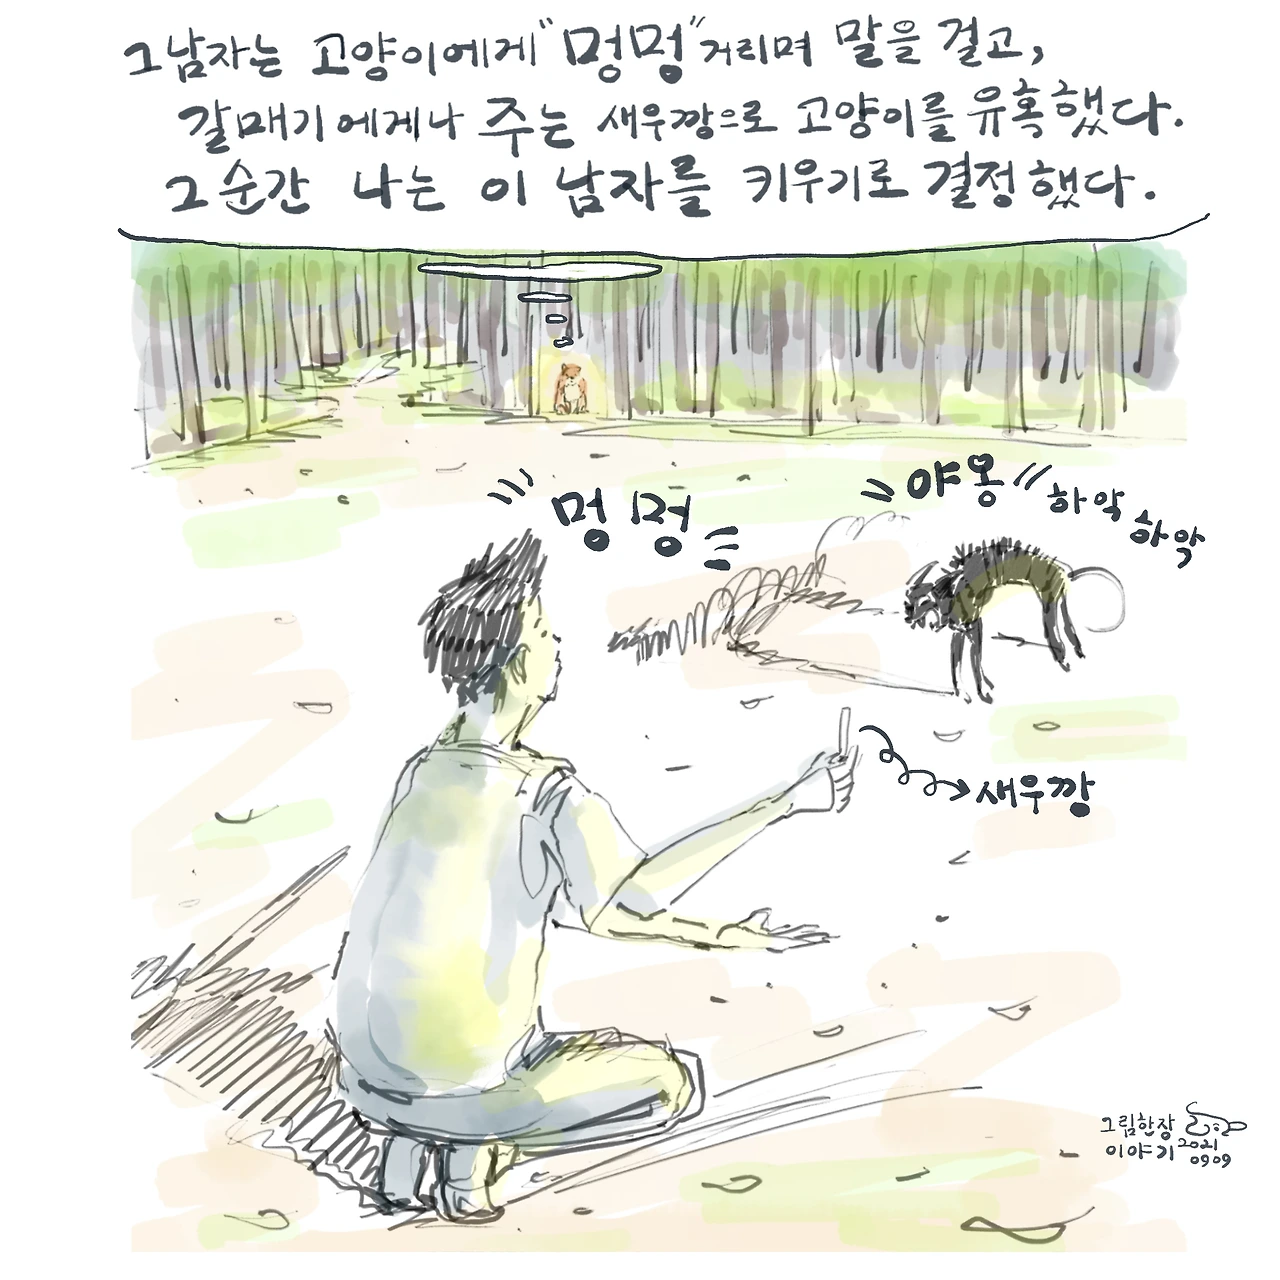 그남자는 고양이에게 "멍멍" 거리며 말을 걸고,
갈매기에게나 주는 새우깡으로 고양이를 유혹했다.
그 순간 나는 이 남자를 키우기로 결정했다.
멍 멍
야옹
하악
하악
새우깡
그림한장
이야기
2021
0909